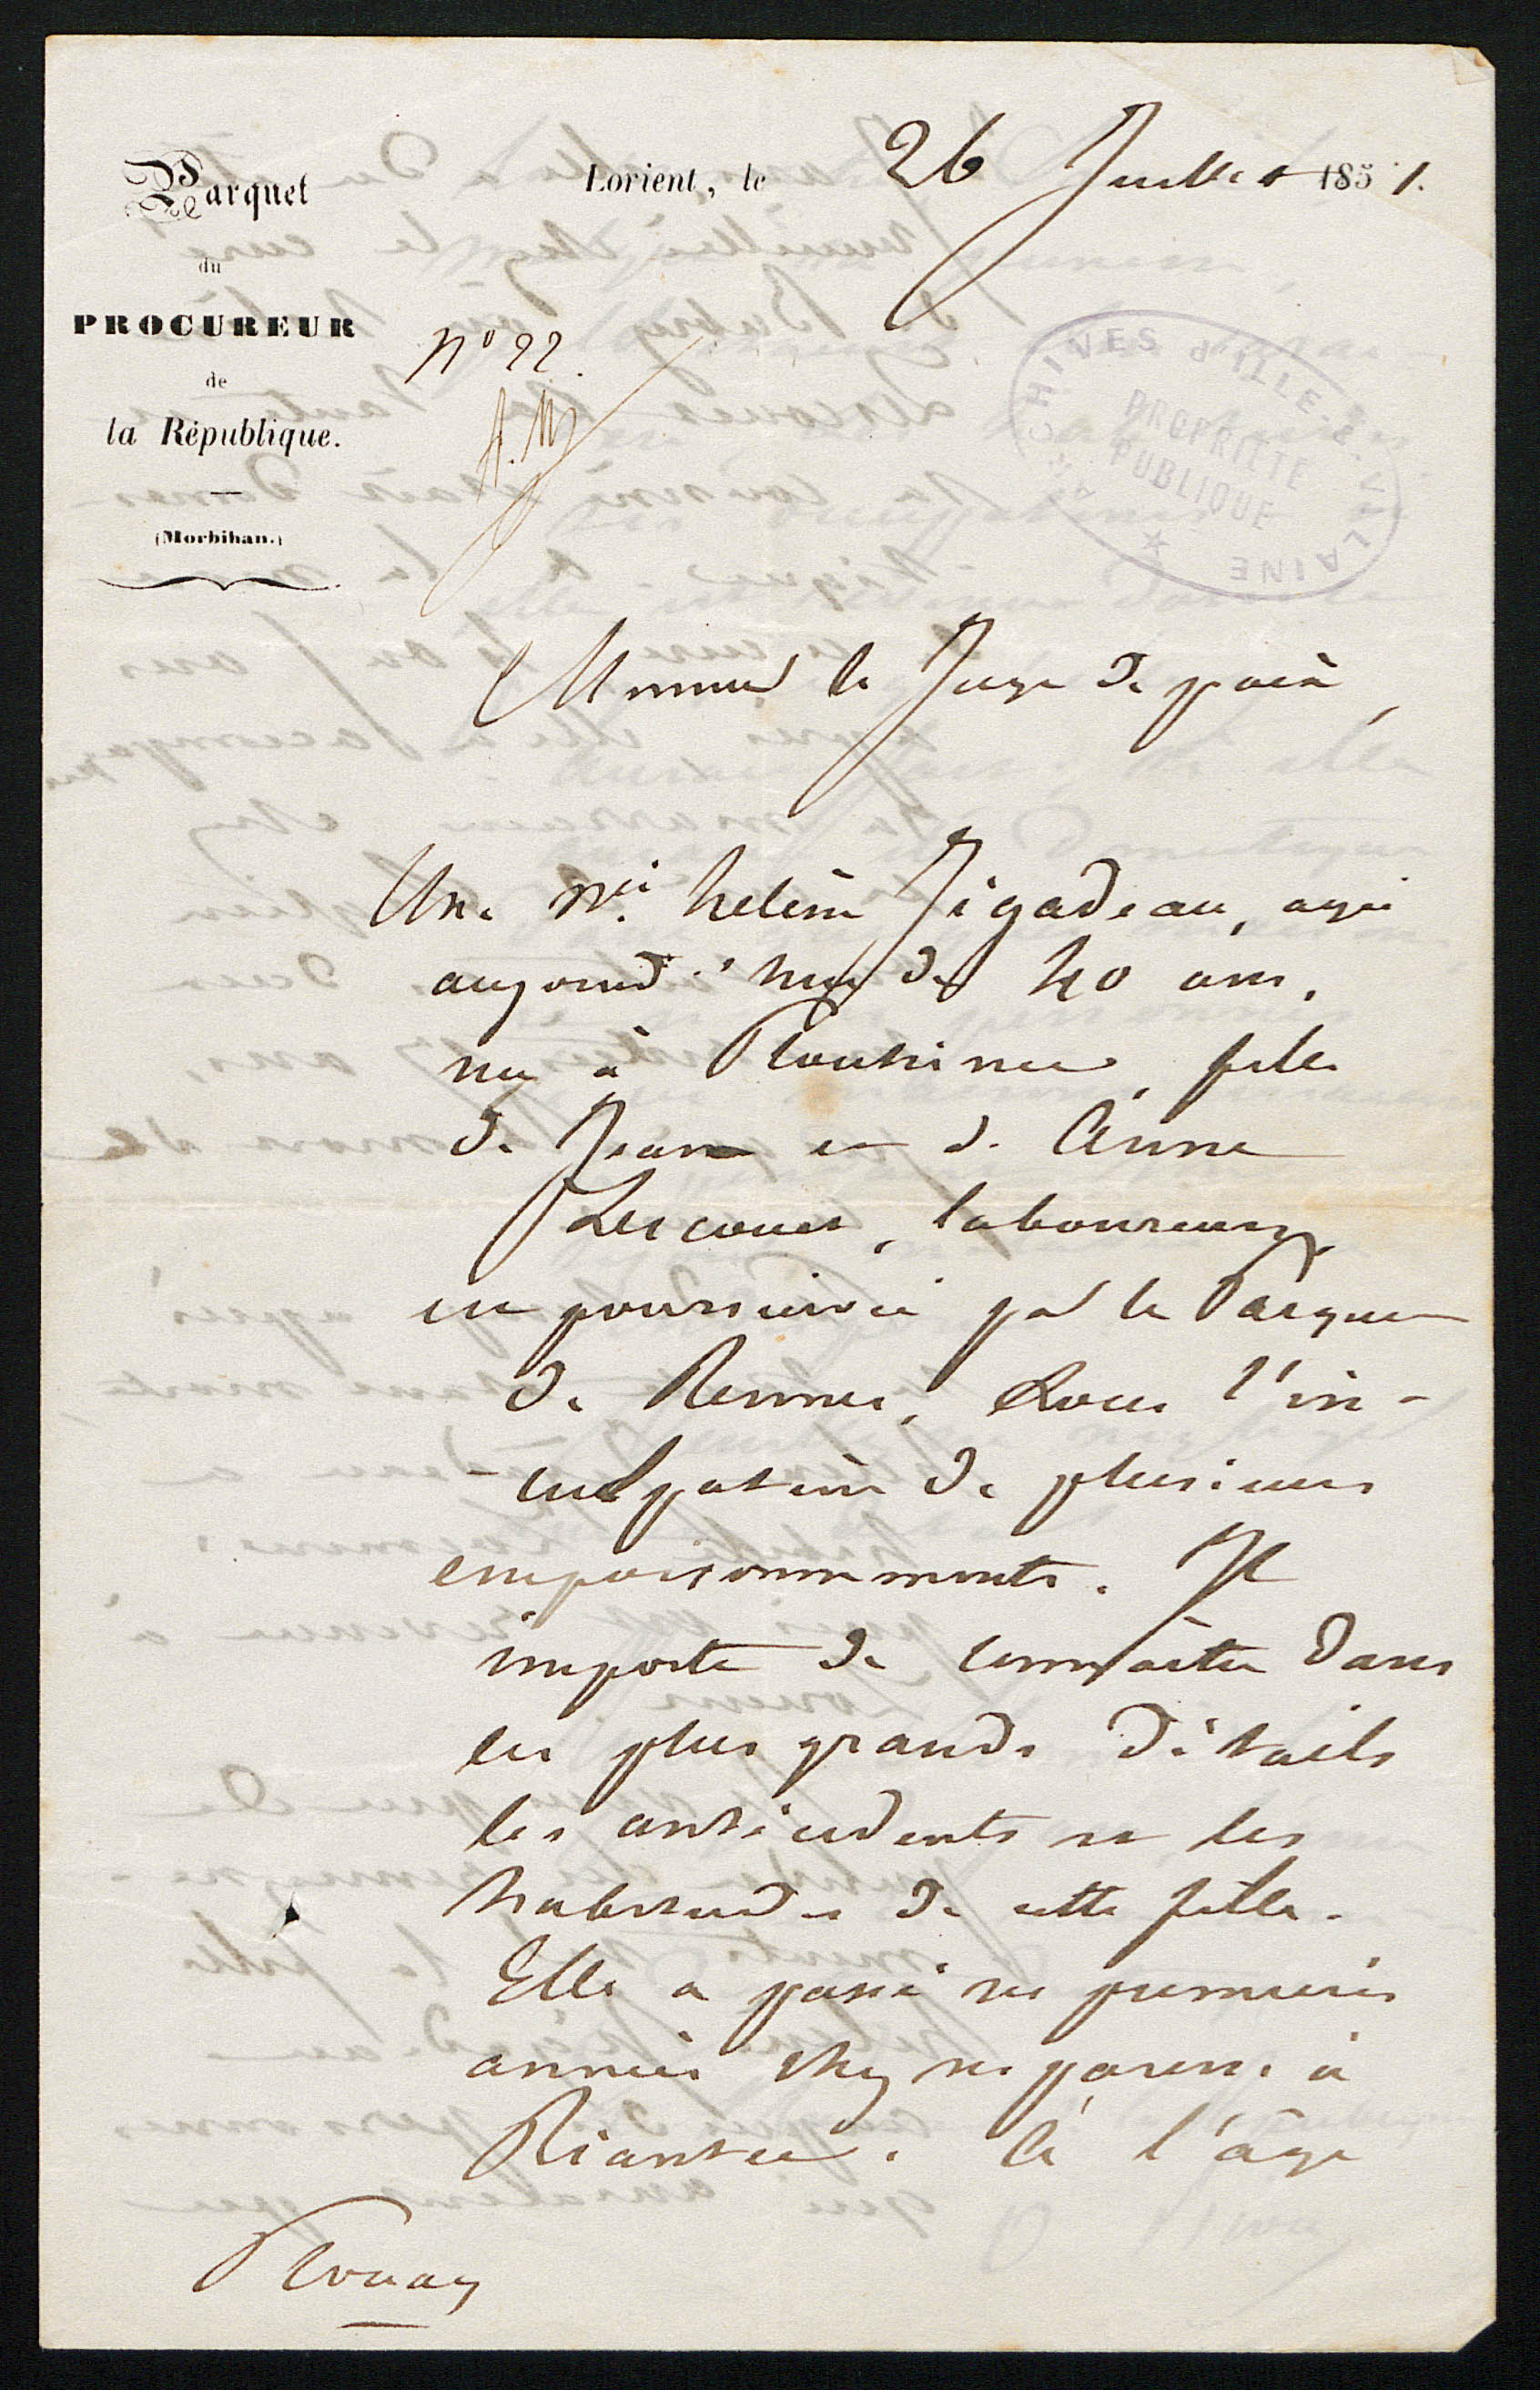 Parquet
du
PROCUREUR
de
la République.
(Morbihan.)
Lorient, le 26 Juillet 1851.
N° 22.
ARCHIVES d'ILLE-&-VILAINE
PROPRIÉTÉ
PUBLIQUE
Monsieur le Juge de paix,
Une née heléne Jégadeau, agée
aujourd'huy de 40 ans,
née à Plouhinec, fille
de Jean et d. Anne
Lescouet, laboureurs,
est poursuivie par le Parquet
de Rennes, sous l'in-
-culpation de plusieurs
empoisonnements. Il
importe de connaître dans
les plus grands détails
les antécédents et les
habitudes de cette fille.
Elle a passé ses premières
années chez ses parens à
Riantec. à l'âge
Plouay